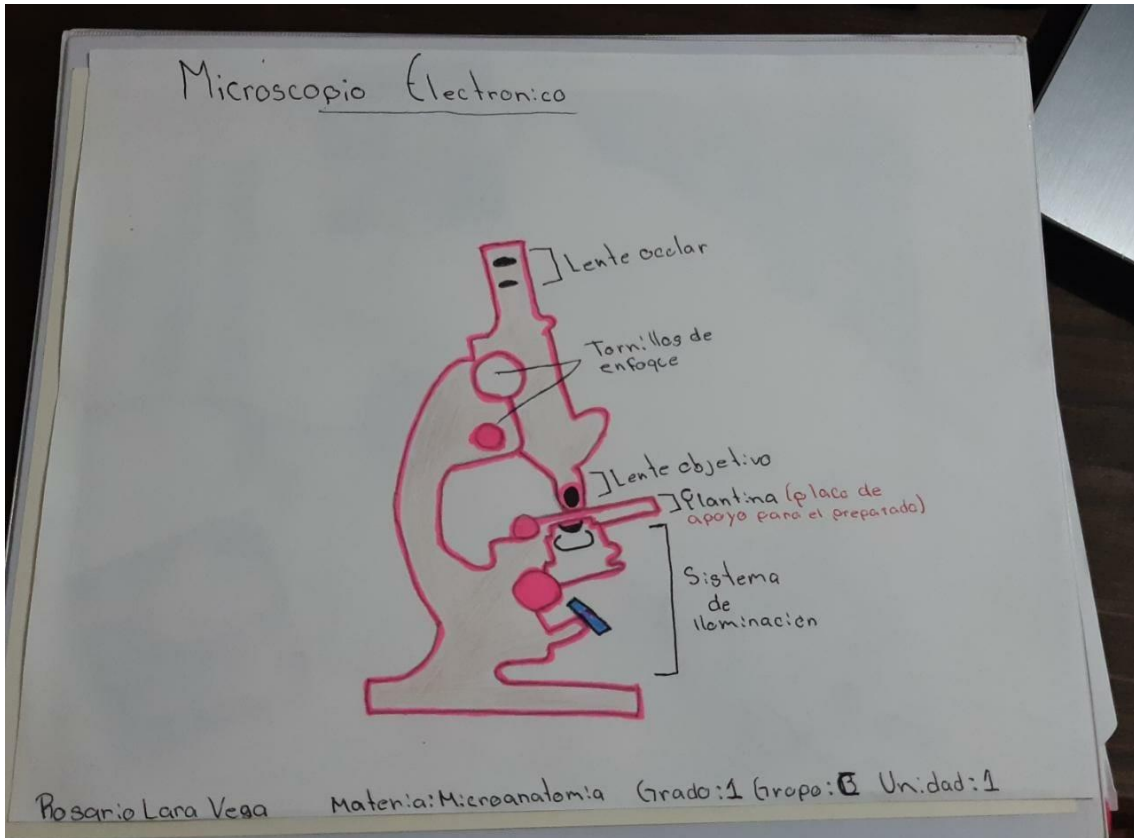 Micróscopio Electronico
Lente occlar
Tornillos de
enfoqce
Lente objetivo
Plantina (placo de
apoyo para el preparado)
Sistema
de
ilominacion
Rosario Lara Vega Materia: Microanatomia Grado: 1 Gropo: C Unidad: 1